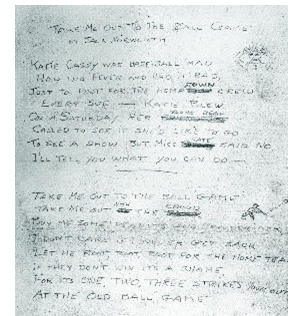 "TAKE ME OUT TO THE BALL GAME"
BY JACK NORWORTH
KATIE CASEY WAS BASE BALL MAD
HAD THE FEVER AND HAD IT BAD,
JUST TO ROOT FOR THE HOME TOWN CREW
EVERY SOU — KATIE BLEW
ON A SATURDAY, HER YOUNG BEAU
CALLED TO SEE IF SHE'D LIKE TO GO
TO SEE A SHOW BUT MISS KATE SAID NO
I'LL TELL YOU WHAT YOU CAN DO —
TAKE ME OUT TO THE BALL GAME
TAKE ME OUT WITH THE CROWD
BUY ME SOME PEANUTS AND
I DON'T CARE IF I NEVER GET BACK
LET ME ROOT, ROOT, ROOT FOR THE HOME TEAM
IF THEY DON'T WIN ITS A SHAME
FOR ITS ONE, TWO, THREE STRIKES YOUR OUT
AT THE OLD BALL GAME